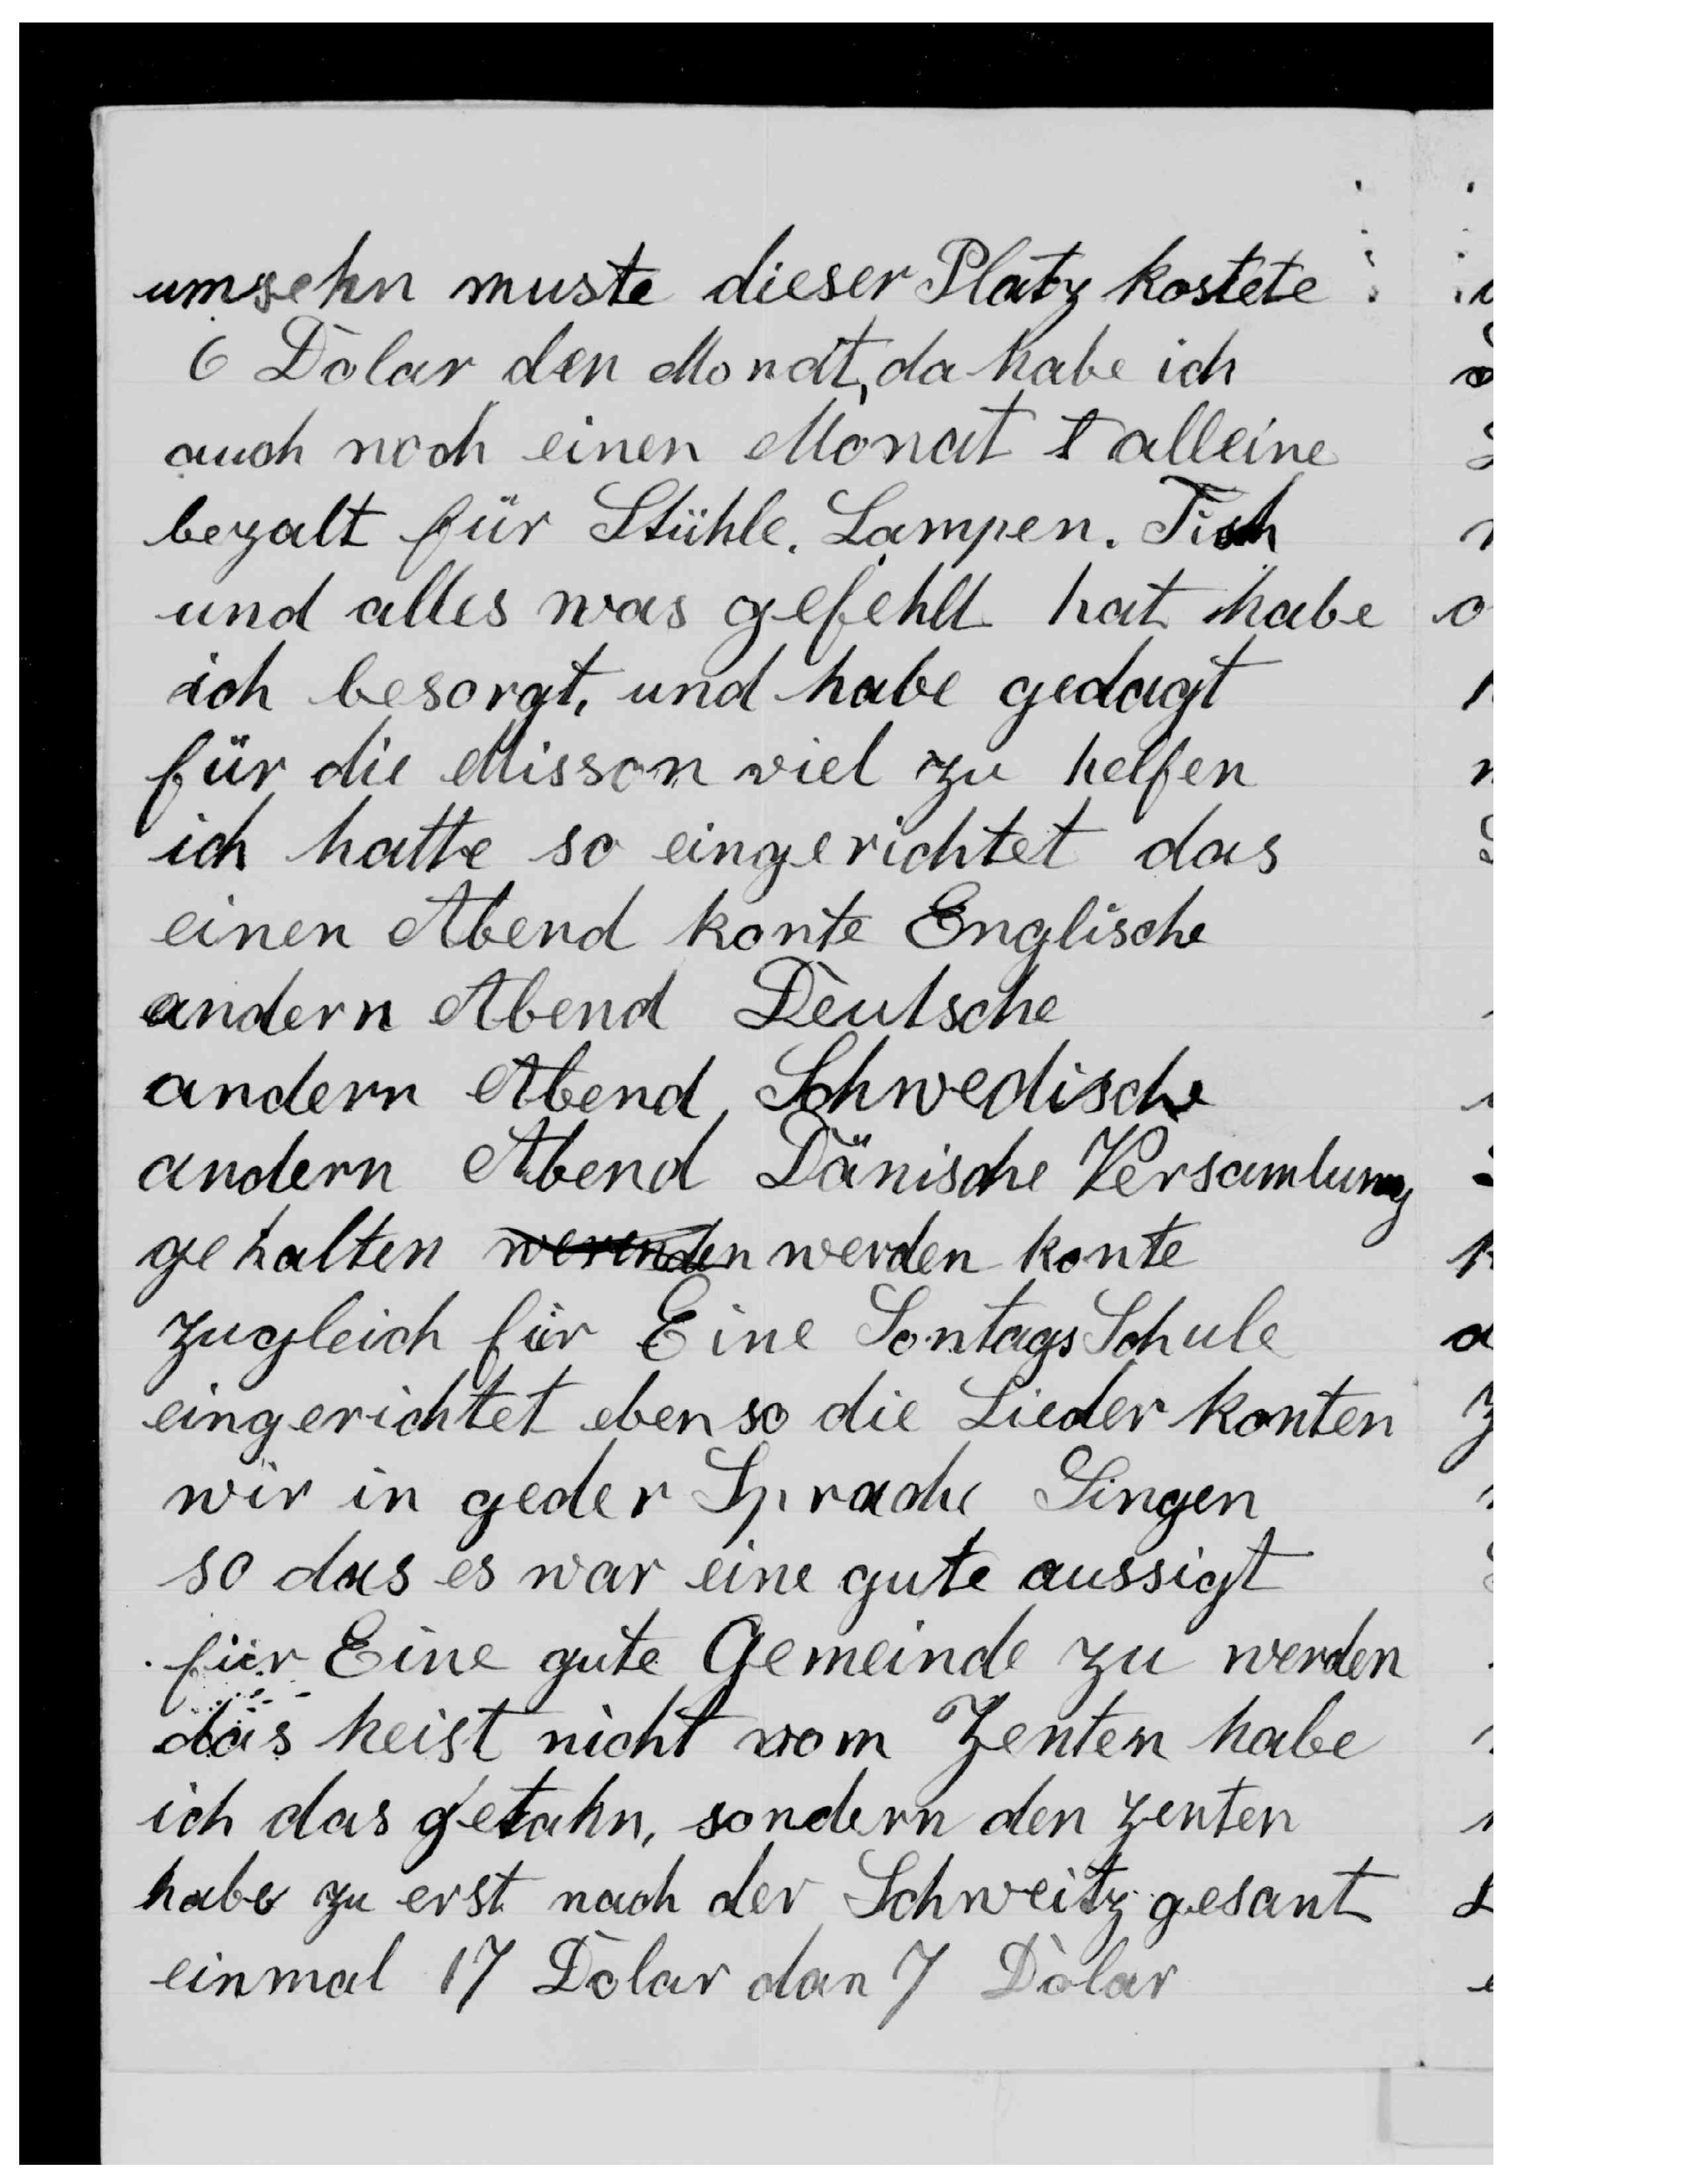 umsehn muste dieser Platz kostete
6 Dolar den Monat, da habe ich
auch noch einen Monat alleine
bezalt für Stühle. Lampen. Tisch
und alles was gefehlt hat habe
ich besorgt, und habe gedagt
für die Misson viel zu helfen
ich hatte so eingerichtet das
einen Abend konte Englische
andern Abend Deutsche
andern Abend, Schwedische
andern Abend Dänische Versamlung
gehalten werden konte
zugleich für Eine SontagsSchule
eingerichtet ebenso die Lieder konten
wir in geder Sprache Singen
so das es war eine gute aussigt
für Eine gute Gemeinde zu werden
das heist nicht vom Zenten habe
ich das getahn, sondern den zenten
habe zu erst nach der Schweitz gesant
einmal 17 Dolar dan 7 Dolar